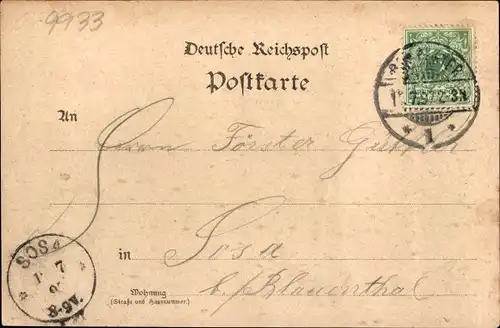 9933
Deutsche Reichspost
Postkarte
An
Herrn Förster
in Sosa
b./Blauenthal
Wohnung
(Straße und Hausnummer.)
SOSA
* 1 *